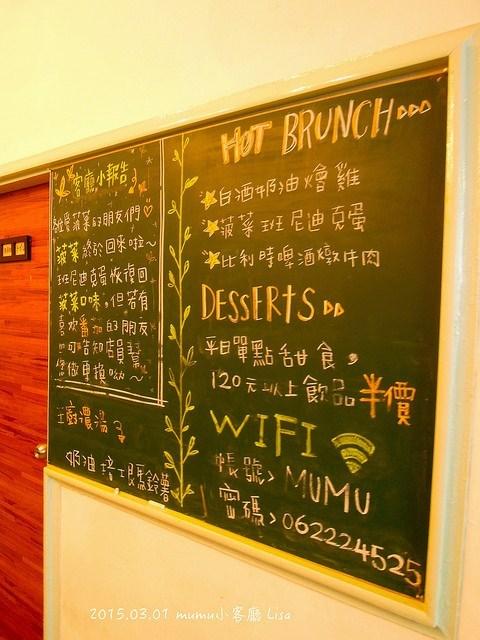 客廳小報告
給愛菠菜的朋友們♡
菠菜終於回來啦～
班尼迪克蛋恢復回
菠菜口味,但若有
喜歡番茄的朋友
可告知店員幫
您做更換呦～
主廚濃湯
奶油培根馬鈴薯
HOT BRUNCH
白酒奶油燴雞
菠菜班尼迪克蛋
比利時啤酒燉牛肉
DESSERTS
平日單點甜食,
120元以上飲品半價
WIFI
帳號> MUMU
密碼> 062224525
2015.03.01 mumu小客廳 Lisa